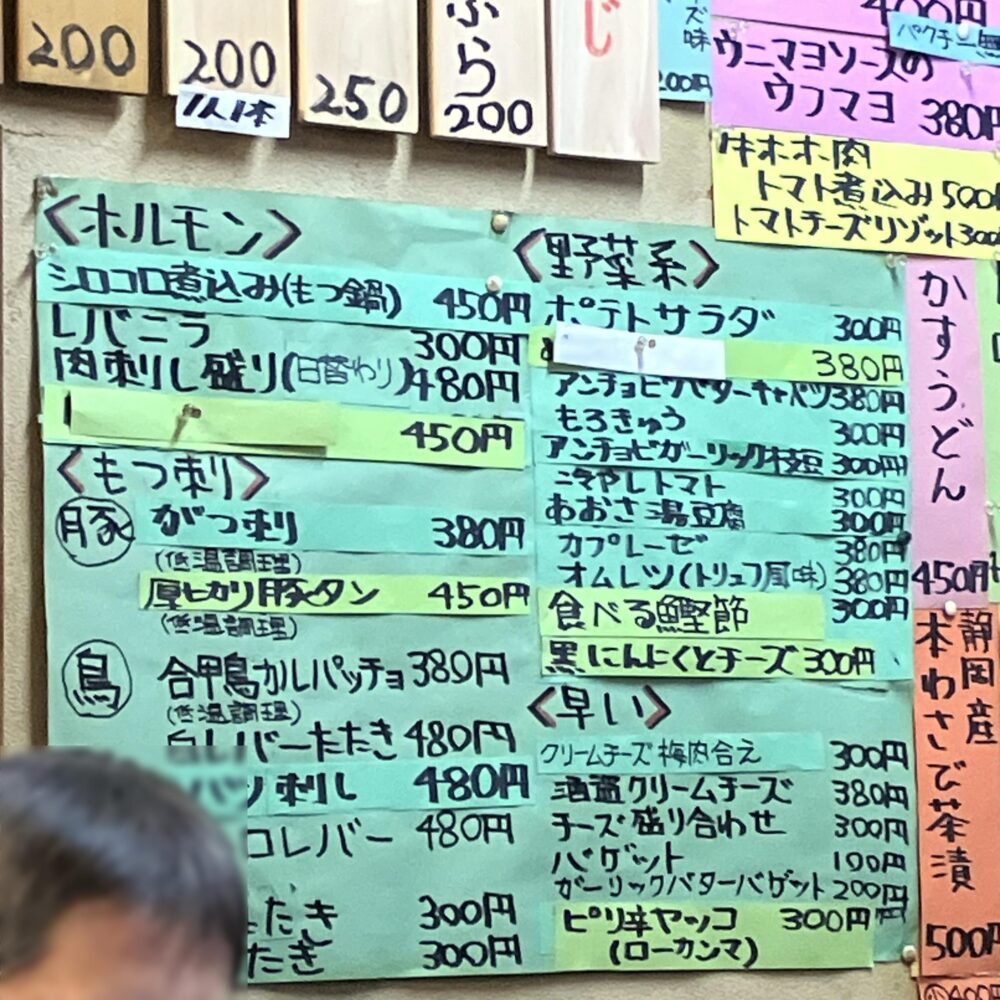 200
200
1人1本
250
ぷら
200
じ
ズ味
200円
400円
パクチー
ウニマヨソースの
ウフマヨ 380円
牛ホホ肉
トマト煮込み 500
トマトチーズリゾット300
<ホルモン>
シロコロ煮込み(もつ鍋) 450円
レバニラ 300円
肉刺し盛り(日替わり) 480円
450円
<もつ刺>
豚 がつ刺 380円
(低温調理)
厚ヒカリ豚タン 450円
(低温調理)
鳥 合甲鳥カルパッチョ 380円
(低温調理)
白レバーたたき 480円
刺し 480円
コレバー 480円
たたき 300円
たき 300円
<野菜系>
ポテトサラダ 300円
380円
アンチョビバターキャベツ 380円
もろきゅう 300円
アンチョビガーリック枝豆 300円
冷やしトマト 300円
あおさ湯豆腐 300円
カプレーゼ 380円
オムレツ(トリュフ風味) 380円
食べる鰹節 300円
黒にんにくとチーズ 300円
<早い>
クリームチーズ梅肉合え 300円
酒盗クリームチーズ 380円
チーズ盛り合わせ 300円
バゲット 100円
ガーリックバターバゲット 200円
ピリ辛ヤッコ 300円
(ローカンマ)
かすうどん
450円
静岡産
本わさび茶漬
500円